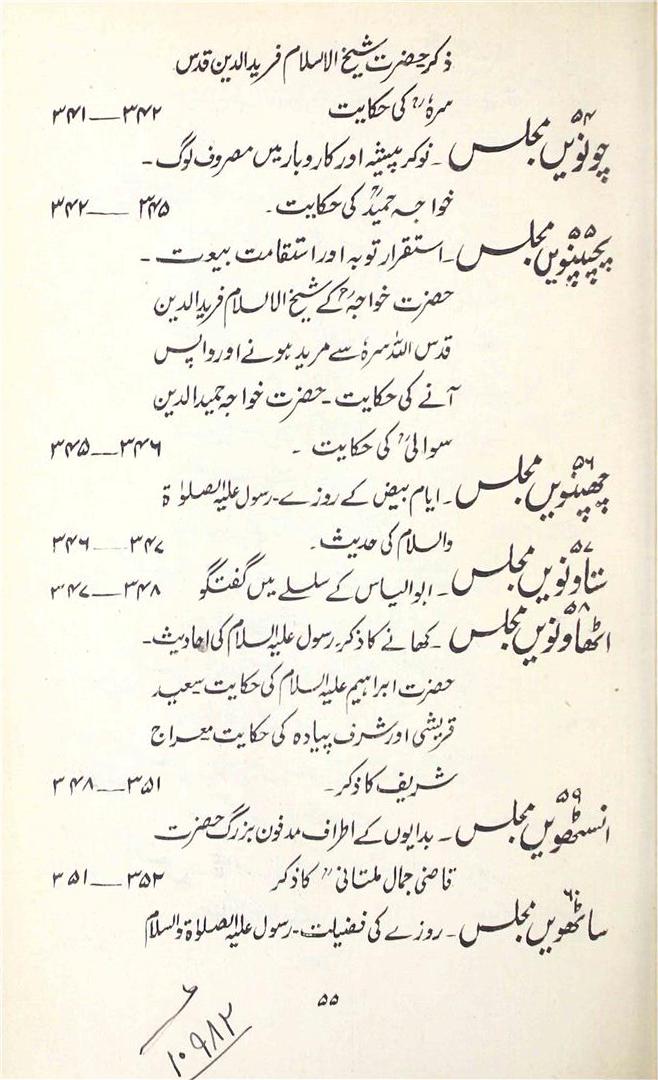 ذکر حضرت شیخ الاسلام فرید الدین قدس
سرہٗ کی حکایت ۳۴۱—۳۴۲
۵۴
چونویں مجلس ۔ نوکر پیشہ اور کاروبار میں مصروف لوگ ۔
خواجہ حمیدؒ کی حکایت ۔ ۳۴۲—۳۴۵
۵۵
پچپنویں مجلس ۔ استقرار توبہ اور استقامت بیعت ۔
حضرت خواجہؒ کے شیخ الاسلام فرید الدین
قدس اللہ سرہٗ سے مرید ہونے اور واپس
آنے کی حکایت ۔ حضرت خواجہ حمید الدین
سوالیؒ کی حکایت ۔ ۳۴۵—۳۴۶
۵۶
چھپنویں مجلس ۔ ایام بیض کے روزے ۔ رسول علیہ الصلوٰۃ
والسلام کی حدیث ۔ ۳۴۶—۳۴۷
۵۷
ستاونویں مجلس ۔ ابوالیاس کے سلسلے میں گفتگو ۳۴۷—۳۴۸
۵۸
اٹھاونویں مجلس ۔ کھانے کا ذکر، رسول علیہ السلام کی احادیث ۔
حضرت ابراہیم علیہ السلام کی حکایت سعید
قریشی اور شرف پیادہ کی حکایت معراج
شریف کا ذکر ۔ ۳۴۸—۳۵۱
۵۹
انسٹھویں مجلس ۔ بدایوں کے اطراف مدفون بزرگ حضرت
قاضی جمال ملتانیؒ کا ذکر ۳۵۱—۳۵۲
۶۰
ساٹھویں مجلس ۔ روزے کی فضیلت ۔ رسول علیہ الصلوٰۃ والسلام
۵۵
۱۰۹۸۲